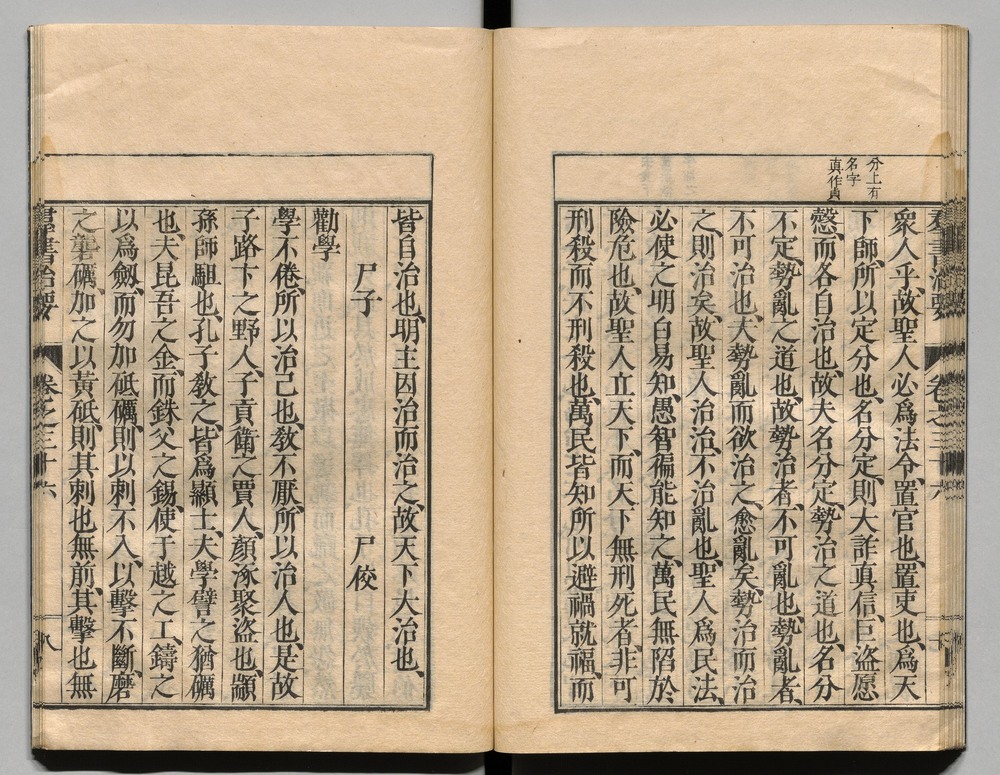 分上有
名字
真作貞
衆人乎、故聖人必爲法令、置官也、置吏也、爲天
下師、所以定分也、名分定、則大詐真信、巨盜愿
愨、而各自治也、故夫名分定、勢治之道也、名分
不定、勢亂之道也、故勢治者、不可亂也、勢亂者、
不可治也、夫勢亂而欲治之、愈亂矣、勢治而治
之、則治矣、故聖人治治、不治亂也、聖人爲民法、
必使之明白易知、愚智徧能知之、萬民無陷於
險危也、故聖人立天下、而天下無刑死者、非可
刑殺而不刑殺也、萬民皆知所以避禍就福、而
羣書治要 卷之三十六
皆自治也、明主因治而治之、故天下大治也、
尸子 尸佼
勸學
學不倦、所以治己也、教不厭、所以治人也、是故
子路卞之野人、子貢衛之賈人、顏涿聚盜也、顓
孫師駔也、孔子教之、皆爲顯士、夫學譬之猶礪
也、夫昆吾之金、而銖父之錫、使于越之工、鑄之
以爲劔、而勿加砥礪、則以刺不入、以擊不斷、磨
之礱礪、加之以黃砥、則其刺也無前、其擊也無
羣書治要 卷之三十六 八